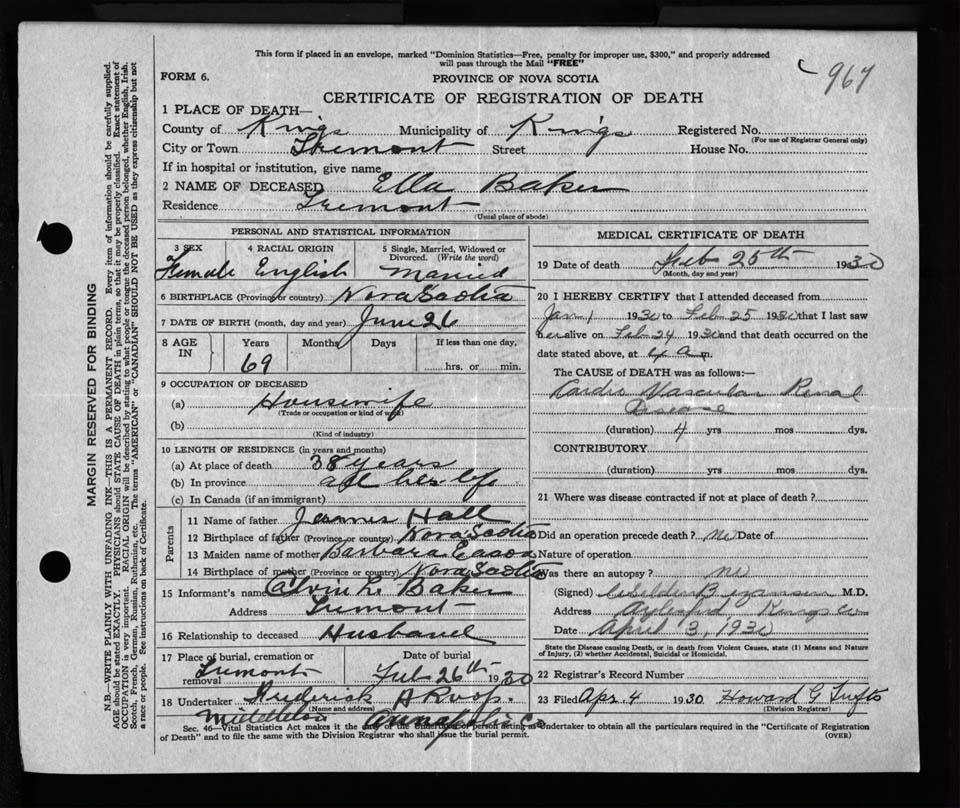 This form if placed in an envelope, marked "Dominion Statistics—Free, penalty for improper use, $300," and properly addressed
will pass through the Mail "FREE"
967
FORM 6.
PROVINCE OF NOVA SCOTIA
CERTIFICATE OF REGISTRATION OF DEATH
1 PLACE OF DEATH—
County of Kings Municipality of Kings Registered No.
(For use of Registrar General only)
City or Town Tremont Street House No.
If in hospital or institution, give name
2 NAME OF DECEASED Ella Baker
Residence Tremont
(Usual place of abode)
PERSONAL AND STATISTICAL INFORMATION
3 SEX 4 RACIAL ORIGIN 5 Single, Married, Widowed or
Divorced. (Write the word)
Female English Married
6 BIRTHPLACE (Province or country) Nova Scotia
7 DATE OF BIRTH (month, day and year) June 26
8 AGE IN Years Months Days If less than one day,
69 hrs. or min.
9 OCCUPATION OF DECEASED
(a) Housewife
(Trade or occupation or kind of work)
(b)
(Kind of industry)
10 LENGTH OF RESIDENCE (in years and months)
(a) At place of death 38 years
(b) In province all her life
(c) In Canada (if an immigrant)
Parents
11 Name of father James Hall
12 Birthplace of father (Province or country) Nova Scotia
13 Maiden name of mother Barbara Eason
14 Birthplace of mother (Province or country) Nova Scotia
15 Informant's name Alvin L. Baker
Address Tremont
16 Relationship to deceased Husband
17 Place of burial, cremation or removal Date of burial
Tremont Feb 26th 1930
18 Undertaker Frederick A Roop.
(Name and address)
Middleton Annapolis Co
MEDICAL CERTIFICATE OF DEATH
19 Date of death Feb 25th 1930
(Month, day and year)
20 I HEREBY CERTIFY that I attended deceased from
Jan 1 1930 to Feb 25 1930 that I last saw
her alive on Feb 24 1930 and that death occurred on the
date stated above, at a m.
The CAUSE of DEATH was as follows:—
Cardio Vascular Renal
Disease
(duration) 4 yrs mos dys.
CONTRIBUTORY
(duration) yrs mos dys.
21 Where was disease contracted if not at place of death?
Did an operation precede death? no Date of
Nature of operation
Was there an autopsy? no
(Signed) M.D.
Address Aylesford Kings Co
Date April 3, 1930
State the Disease causing Death, or in death from Violent Causes, state (1) Means and Nature
of Injury, (2) whether Accidental, Suicidal or Homicidal.
22 Registrar's Record Number
23 Filed Apr. 4 1930 Howard G
(Division Registrar)
Sec. 46—Vital Statistics Act makes it the duty of the Undertaker or person acting as Undertaker to obtain all the particulars required in the "Certificate of Registration
of Death" and to file the same with the Division Registrar who shall issue the burial permit.
(OVER)
MARGIN RESERVED FOR BINDING
N.B.—WRITE PLAINLY WITH UNFADING INK—THIS IS A PERMANENT RECORD. Every item of information should be carefully supplied.
AGE should be stated EXACTLY. PHYSICIANS should STATE CAUSE OF DEATH in plain terms, so that it may be properly classified. Exact statement of
OCCUPATION is very important. RACIAL ORIGIN will be described by stating to what people or tongue the deceased person belonged, whether English, Irish,
Scotch, French, German, Russian, Ruthenian, etc. The terms "AMERICAN" or "CANADIAN" SHOULD NOT BE USED as they express citizenship but not
a race or people. See instructions on back of Certificate.